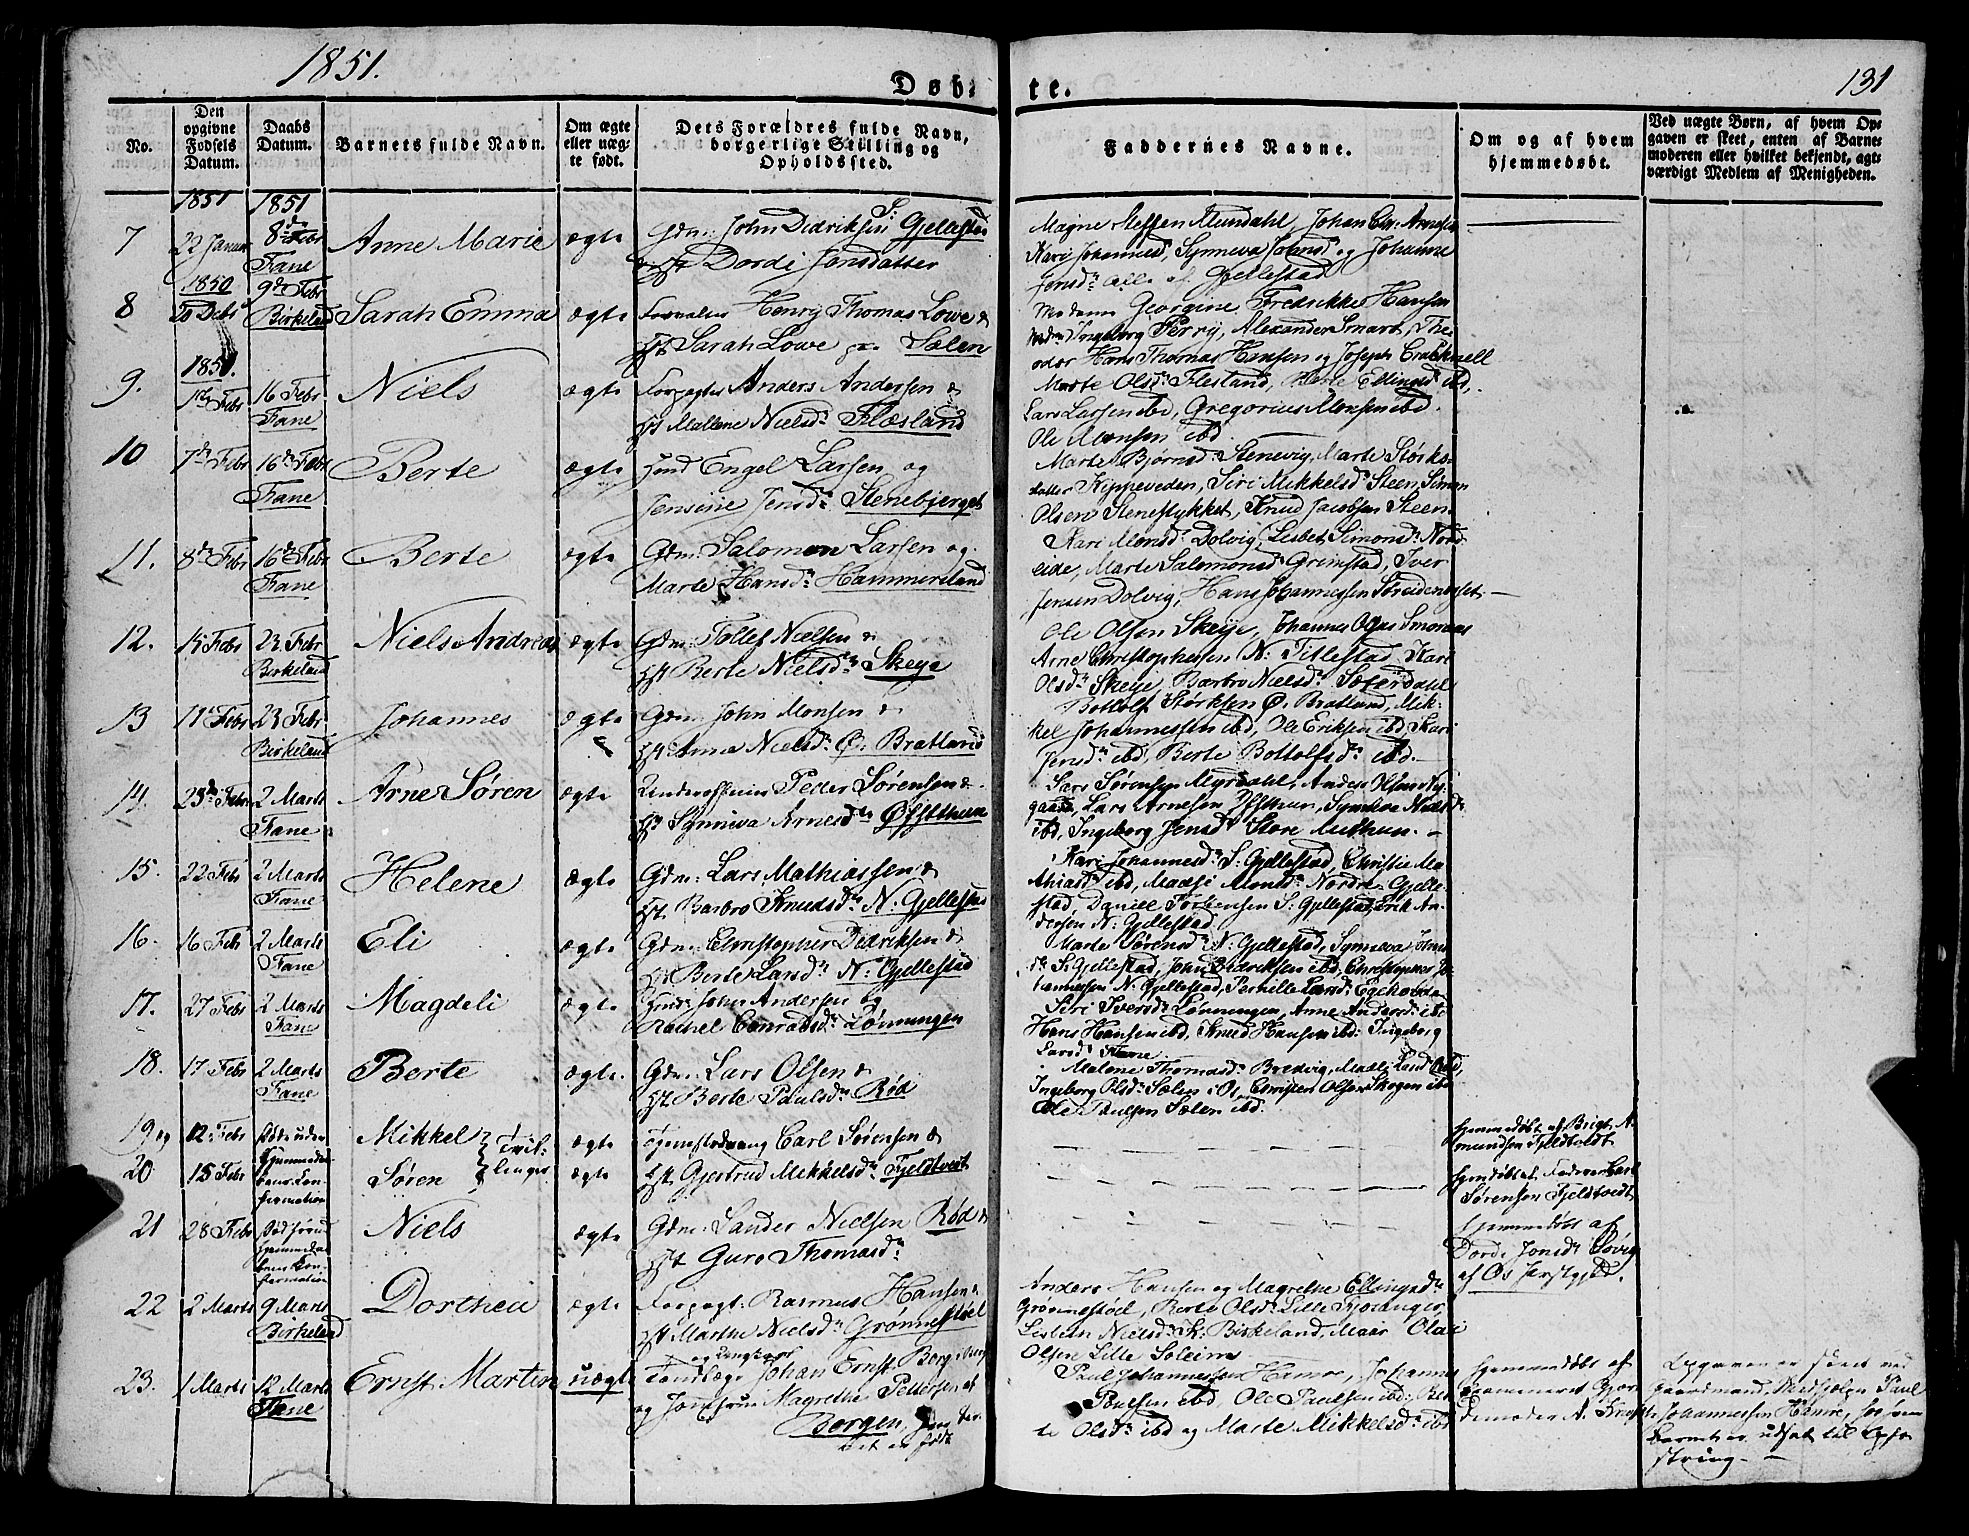 1851.
Døbte.
131
No.
Den opgivne Fødsels Datum.
Daabs Datum.
Barnets fulde Navn.
Om ægte eller uægte født.
Dets Forældres fulde Navn, borgerlige Stilling og Opholdssted.
Faddernes Navne.
Om og af hvem hjemmedøbt.
Ved uægte Børn, af hvem Opgaven er skeet, enten af Barnemoderen eller hvilket bekjendt, agtværdigt Medlem af Menigheden.
1851 1851
7 22 Januar 8de Febr Fane Anne Marie ægte Gdm: John Didriksen S: Gjelestad
Dordi Jonsdatter
Magne Steffen Mundahl, Johan Chr: Arnesen
Kari Johannesd, Synneva Johnsd og Johanne
Jensdr alle af Gjellestad
1850
8 20 Debr 9de Febr Birkeland Sarah Emma ægte Forvalter Henry Thomas Lowe &
Hst Sarah Lowe Sælen
Madame Georgine Fredrikke Hansen
Ingeborg Ferry, Alexander Smart, The
odor Hans Thomas Hansen og Joseph Cracknell
1851.
9. Febr 16 Febr Fane Niels ægte Forpagter Anders Andersen &
Hst Mallene Nielsdr Flæsland
Marte Olsdr Flesland, Berte Ellingsdr ibd,
Lars Larsen ibd, Gregorius Monsen ibd.
Ole Monsen ibd.
10 7de Febr 16de Febr Fane Berte ægte Engel Larsen og
Jensine Jensdr Stenebjerget
Marte Bjørnsdr Stenevig, Marte Størks
datter Kippeveden, Siri Mikkelsdr Steen, Simon
Olsen Stenestykket, Knud Jacobsen Steen.
11. 8de Febr 16de Febr Fane Berte ægte Gdm: Salomon Larsen og
Marte Hansdr Hammersland
Kari Monsdr Dolvig, Lisbet Simonsdr Nord
eide, Marte Salomonsdr Grimstad, Iver
Jensen Dolvig, Hans Johannessen Søreidneset
12. 15 Febr 23 Febr Birkeland Niels Andreas ægte Gdm: Tollef Nielsen &
Hst Berte Nielsdr Skeye
Ole Olsen Skeye, Johannes Olsen Smoraas
Arne Christophersen N: Titlestad, Kari
Olsdr Skeye, Barbro Nielsdr Sæterdahl
13 11 Febr 23 Febr Birkeland Johannes ægte Gdm: John Monsen &
Hst: Anna Nielsdr Ø: Bratland
Bottolf Størksen Ø. Bratland, Mik-
kel Johannessen ibd, Ole Eriksen ibd, Kari
Jensdr ibd, Berte Bottolfsdr ibd.
14. 23de Febr 2 Marts Fane Arne Søren ægte Underofficier Peder Sørensen &
Hst Synniva Arnesdr Øfsthuun
Lars Sørensen Myrdahl, Anders Olsen Ny
gaard, Lars Arnesen Øfsthuun, Synneva Nielsdr
ibd, Ingeborg Jensdr Store Milthun.
15. 22 Febr 2 Marts Fane Helene ægte Gdm: Lars Mathiassen &
Hst. Barbro Knudsdr N. Gjellestad
Kari Johannesdr S: Gjellestad, Christie Ma
thiasdr ibd, Monsdr Nordre Gjelle
stad, Daniel Torkensen S: Gjellestad, Erik An
dersen N: Gjellestad
16. 16 Febr 2 Marts Fane Eli ægte Gdm: Christopher Didriksen &
Hst Berte Larsdr N: Gjellestad
Marte Sørensdr N: Gjellestad, Synneva Johns
dr S: Gjellestad, John Didriksen ibd, Christopher Jo
hannessen N. Gjellestad, Pernille Larsdr
17. 27 Febr 2 Marts Fane Magdeli ægte John Andersen og
Rachel Conradsdr Lønningen
Siri Iversdr Lønningen, Anne Andersdr ibd
Hans Hansen ibd, Knud Hansen ibd: Ingeborg
Larsdr Fane
18. 17 Febr 2 Marts Fane Berte ægte Gdm: Lars Olsen &
Hst Berte Paulsdr Rød
Malene Thomasdr Bredvig,
Ingeborg Olsdr Sælen i Os, Christen Olsen Skogen ibd
Ole Paulsen Sælen ibd.
19 og 12 Febr Døde uden Mikkel Tvil- ægte Tjenestedreng Carl Sørensen &
20 15 Febr Hjemmedaabens Confirmation Søren linger ægte Hst. Gjertrud Mikkelsdr Fjeldtvedt
Hjemmedøbt af Brigt A
mundsen Fjeldtvedt
Hjemdøbt af Faderen Carl
Sørensen Fjeldtvedt
21 28 Febr Død førend Hjemmedaabens Confirmation Niels ægte Gdm: Sander Nielsen Rød &
Hst Guro Thomasdr
Hjemmedøbt af
Dordi Jonsdr Søvig
af Os Præstgjeld.
22 2 Marts 9 Marts Birkeland Dorthea ægte Forpagt: Rasmus Hansen &
Hst Marthe Nielsdr Grønnestøel
Anders Hansen og Magrethe Ellingsdr
Grønnestøel, Berte Olsdr Lille Fjøsanger
Lisbeth Nielsdr K: Birkeland, Olai
Olsen Lille Soleim
23. 1 Marts 12 Marts Fane Ernst Martin uægte Tandlæge og Ungkarl Johan Ernst Borg i Berg
og Jomfrue Magrethe Pettersen af
Bergen, hvor bar
net er født
Paul Johannessen Hamre, Johanne
Poulsen ibd, Ole Paulsen ibd: Ber
te Olsdr ibd og Marte Mikkelsdr ibd
Hjemmedøbt af
examineret Gjor
demoder A. Kruse
Opgaven er skeet ved
Gaardmand, Medhjelper Paul
Johannessen Hamre, hos hvem
Barnet er udsat til Opfo
string.